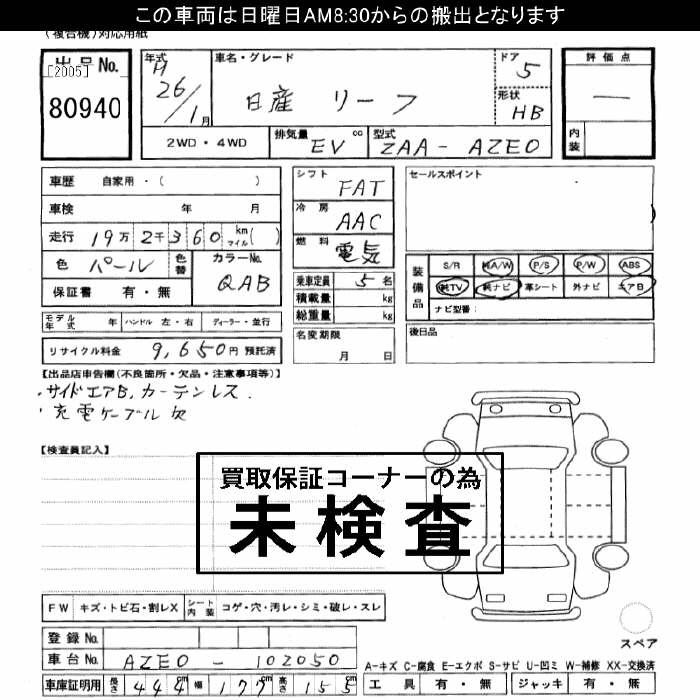 この車両は日曜日AM8:30からの搬出となります
(複合機)対応用紙
出品No.
[2005]
80940
年式 H 26/1月
車名・グレード
日産 リーフ
ドア 5
形状 HB
評価点
―
内装
2WD・4WD
排気量 EV cc
型式 ZAA-AZE0
車歴 自家用・( )
車検 年 月
走行 19万2千360 km マイル( )
色 パール 色替
カラーNo. QAB
保証書 有・無
シフト FAT
冷房 AAC
燃料 電気
乗車定員 5名
積載量 kg
総重量 kg
セールスポイント
装備品
S/R 純A/W P/S P/W ABS
純TV 純ナビ 革シート 外ナビ エアB
ナビ型番:
モデル年式 年 ハンドル 左・右 ディーラー・並行
リサイクル料金 9,650円 預託済
名変期限
月 日
後日品
【出品店申告欄(不良箇所・欠品・注意事項等)】
サイドエアB,カーテンレス.
充電ケーブル欠
【検査員記入】
買取保証コーナーの為
未検査
FW キズ・トビ石・割レX シート内装 コゲ・穴・汚レ・シミ・破レ・スレ
登録No.
車台No. AZE0-102050
車庫証明用 長さ 444cm 幅 177cm 高さ 155cm
スペア
A-キズ C-腐食 E-エクボ S-サビ U-凹ミ W-補修 XX-交換済
工具 有・無 ジャッキ 有・無